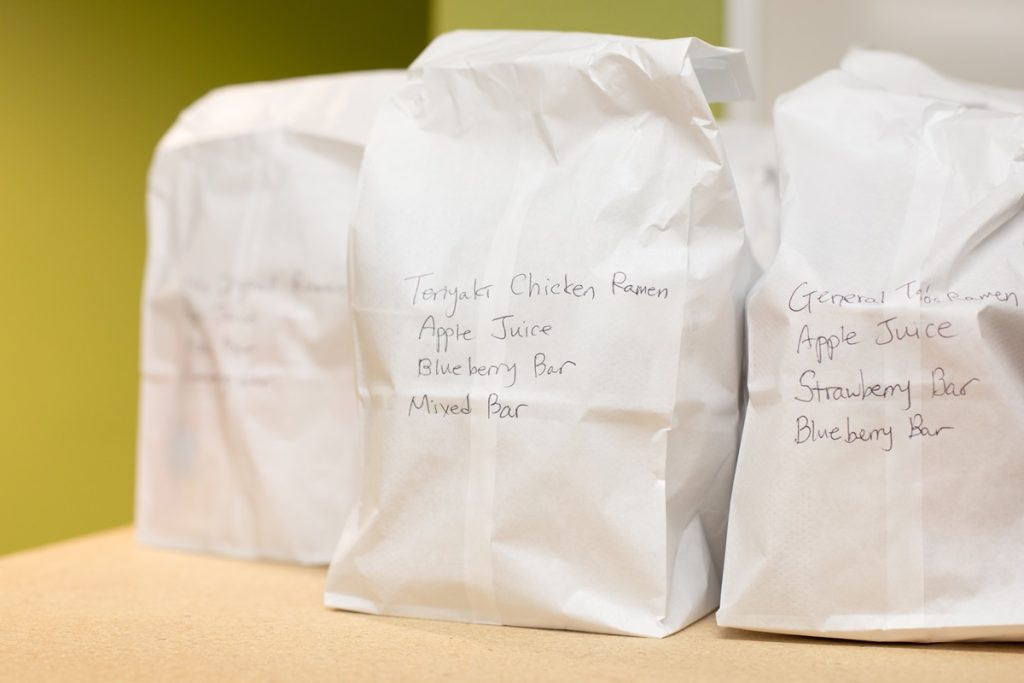 Ramen
Teriyaki Chicken Ramen
Apple Juice
Blueberry Bar
Mixed Bar
General Tso's Ramen
Apple Juice
Strawberry Bar
Blueberry Bar